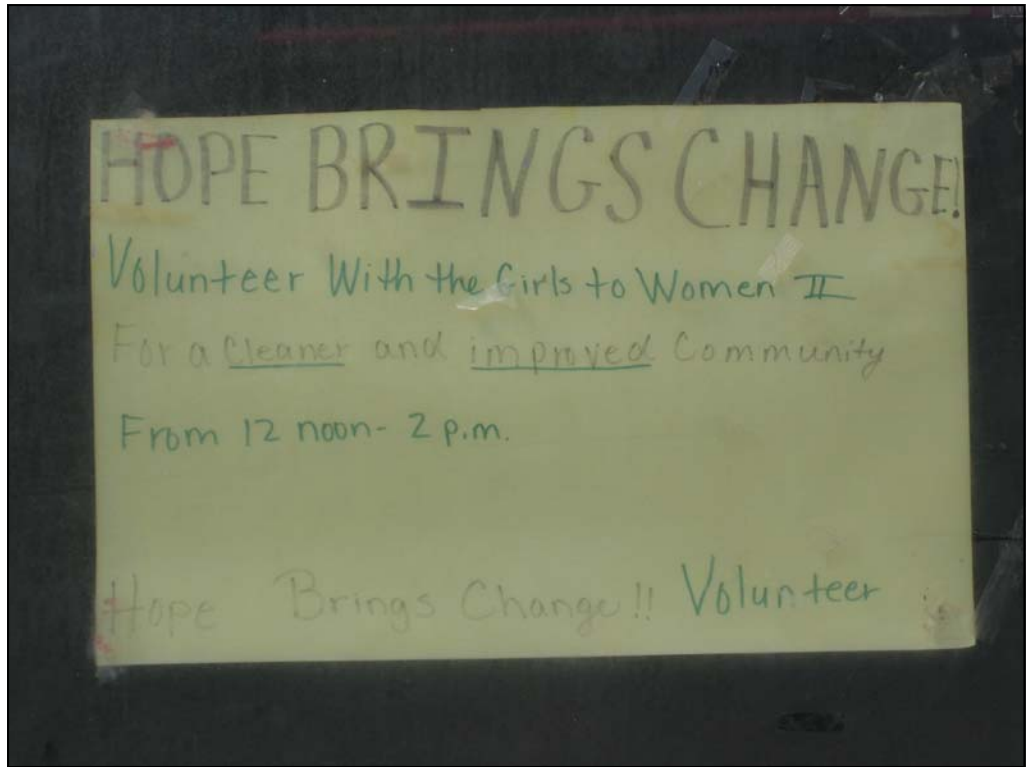 HOPE BRINGS CHANGE!
Volunteer With the Girls to Women II
For a cleaner and improved Community
From 12 noon- 2 p.m.
Hope Brings Change!! Volunteer